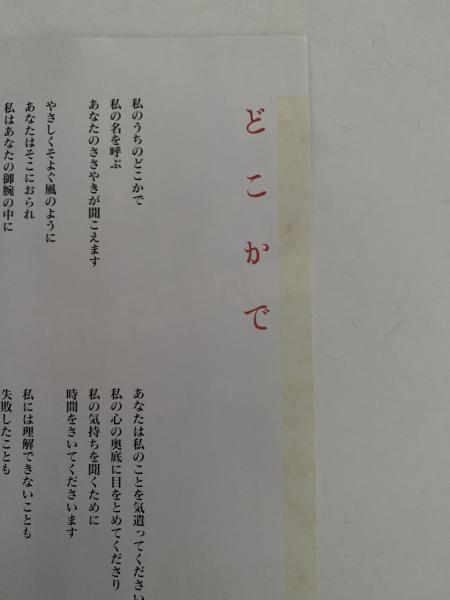 どこかで
私のうちのどこかで
私の名を呼ぶ
あなたのささやきが聞こえます
やさしくそよぐ風のように
あなたはそこにおられ
私はあなたの御腕の中に
あなたは私のことを気遣ってください
私の心の奥底に目をとめてくださり
私の気持ちを聞くために
時間をさいてくださいます
私には理解できないことも
失敗したことも